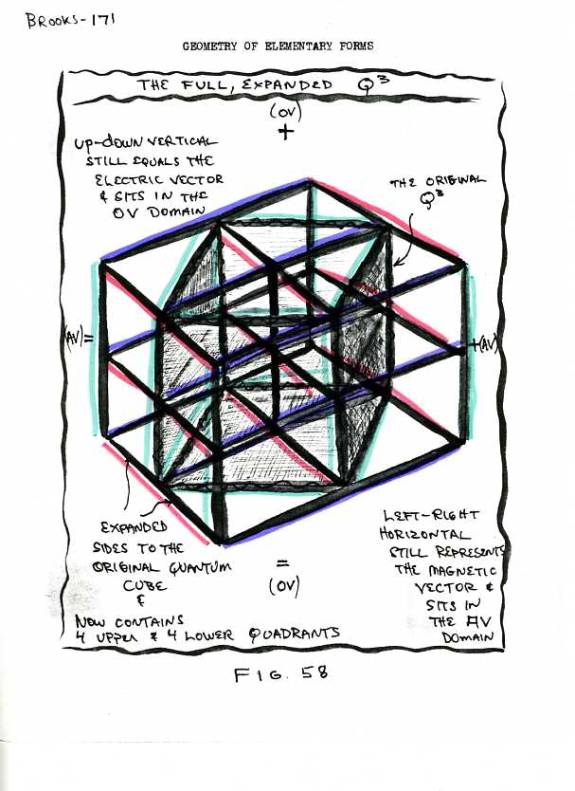 BROOKS-171
GEOMETRY OF ELEMENTARY FORMS
THE FULL, EXPANDED Q³
(OV)
+
UP-DOWN VERTICAL
STILL EQUALS THE
ELECTRIC VECTOR
& SITS IN THE
OV DOMAIN
THE ORIGINAL
Q³
(AV)=
+(AV)
EXPANDED
SIDES TO THE
ORIGINAL QUANTUM
CUBE
&
NOW CONTAINS
4 UPPER & 4 LOWER QUADRANTS
=
(OV)
LEFT-RIGHT
HORIZONTAL
STILL REPRESENTS
THE MAGNETIC
VECTOR &
SITS IN
THE AV
DOMAIN
FIG. 58